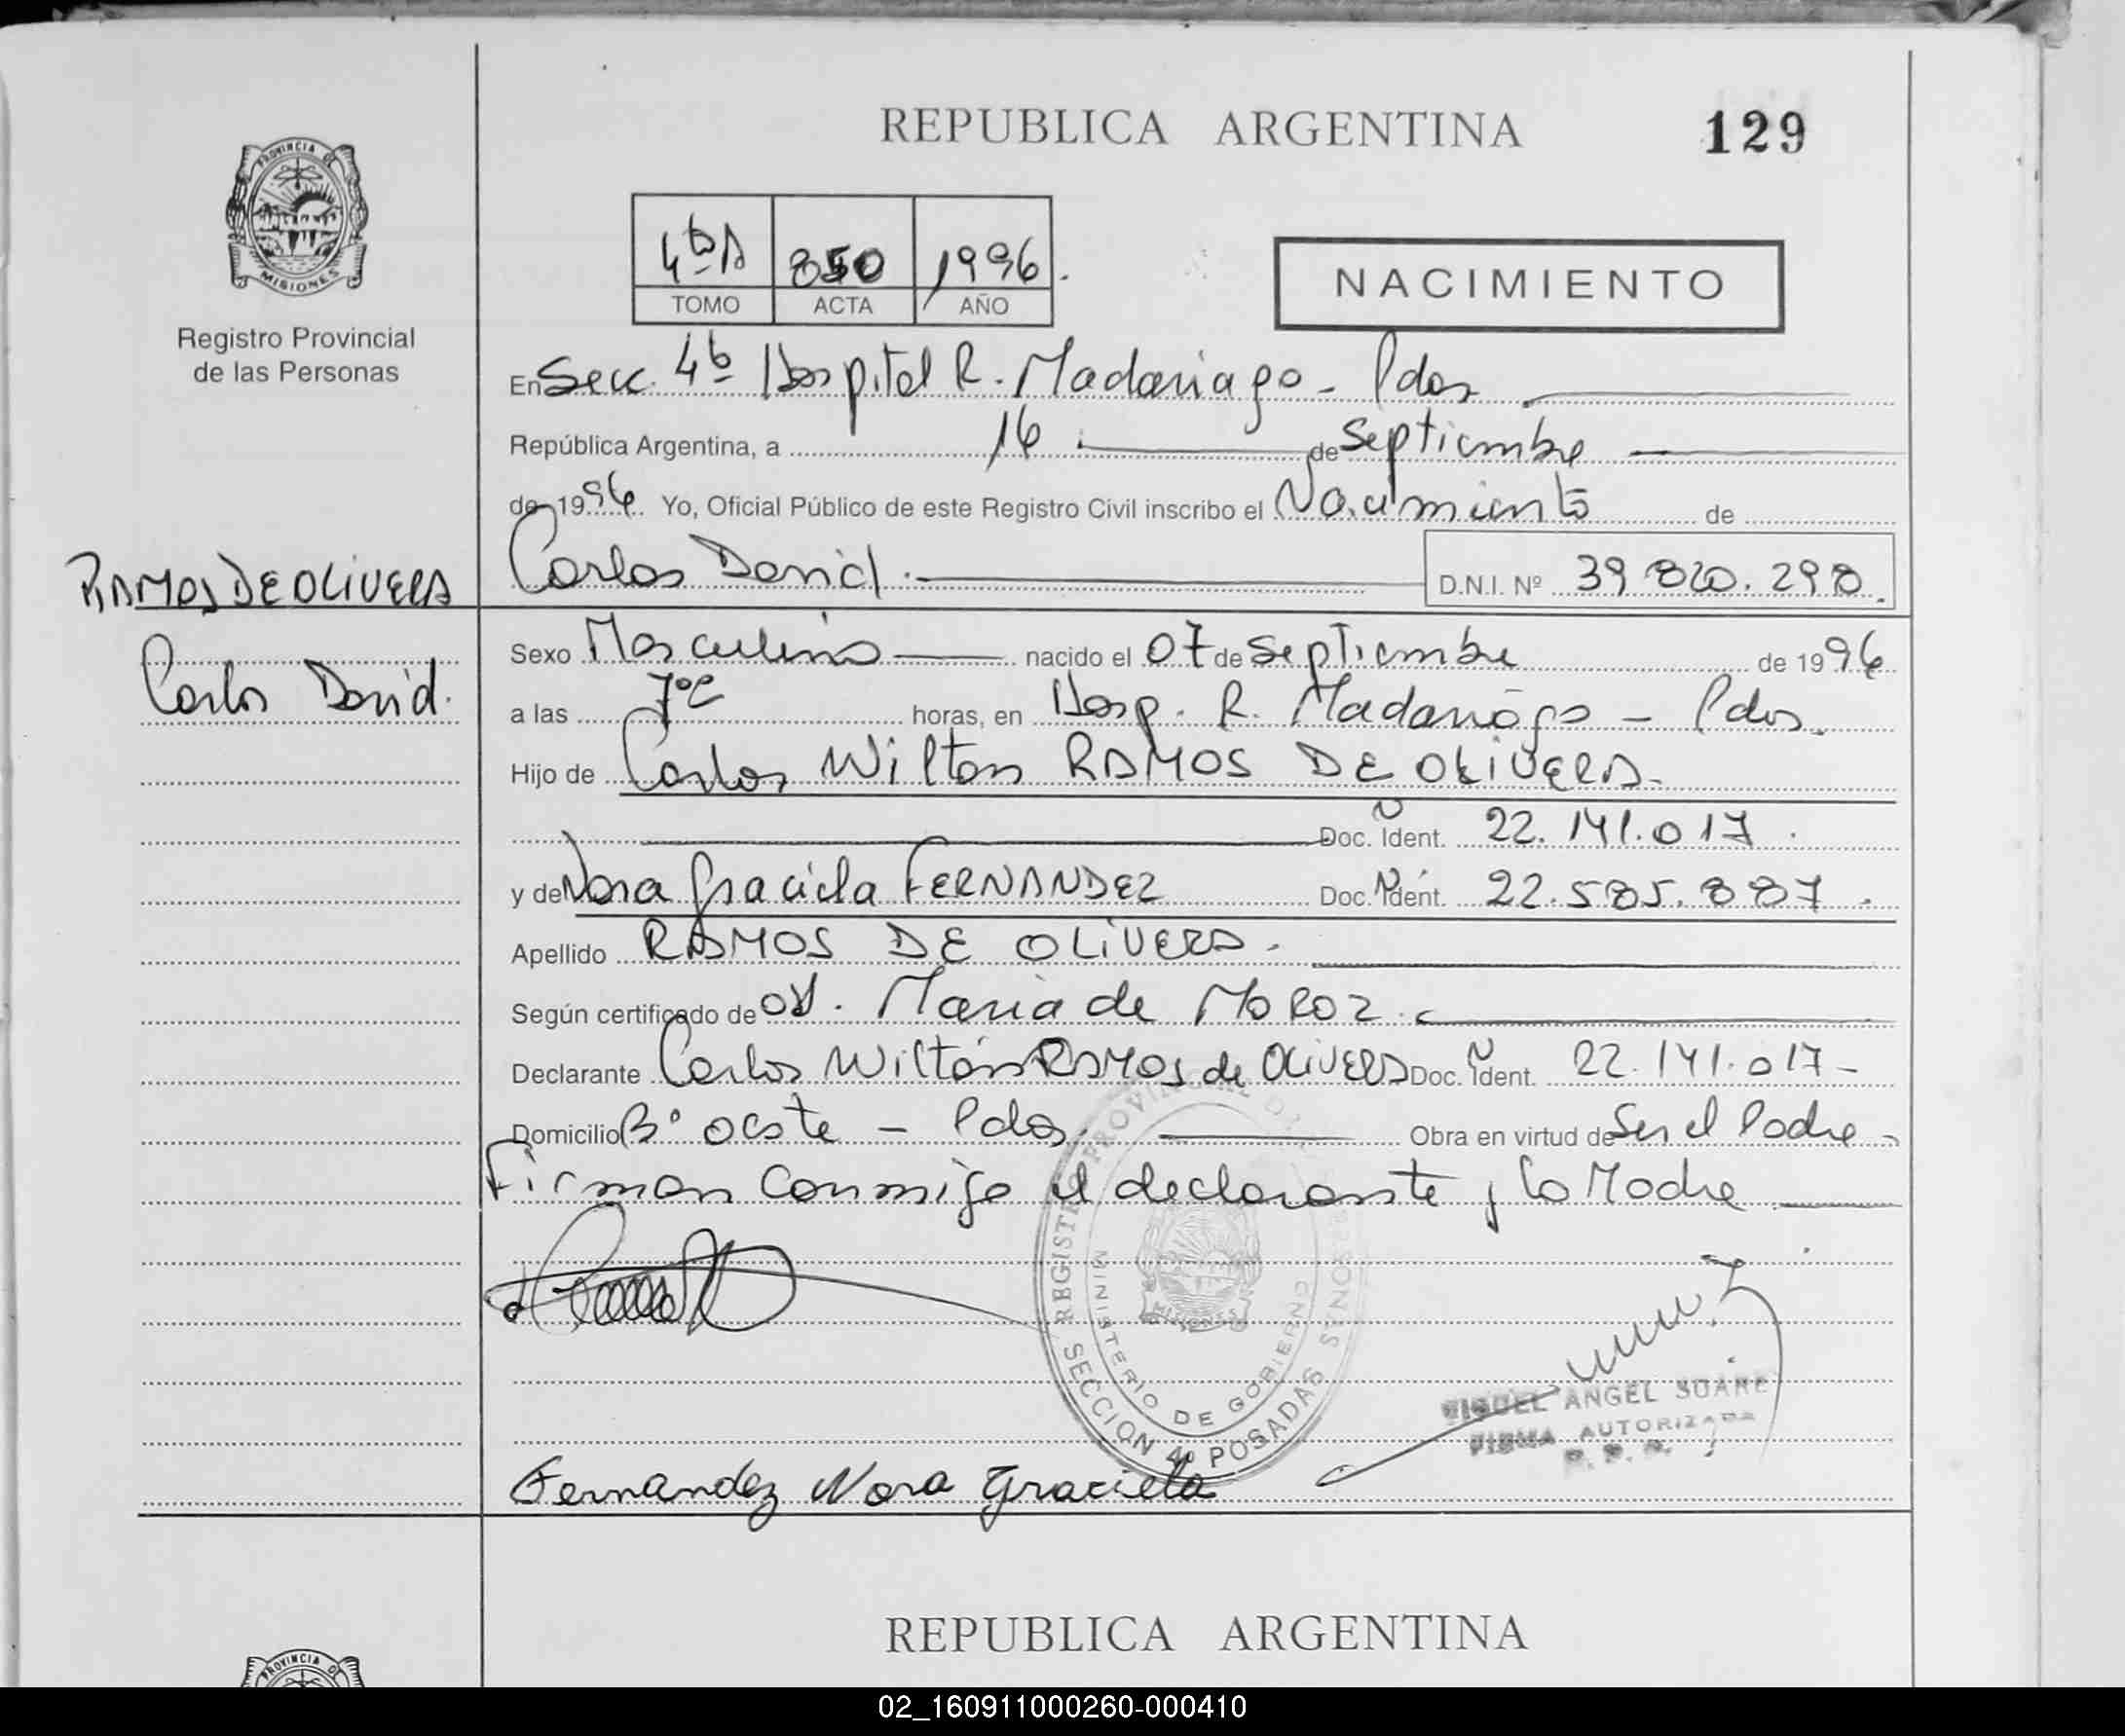 REPUBLICA ARGENTINA
129
PROVINCIA DE
MISIONES
Registro Provincial
de las Personas
4tº A 850 1996.
TOMO ACTA AÑO
NACIMIENTO
En Secc. 4ta Hospital R. Madariaga - Pdas
República Argentina, a 16 de Septiembre
de 1996 Yo, Oficial Público de este Registro Civil inscribo el Nacimiento de
Carlos David. D.N.I. Nº 39.820.298.
RAMOS DE OLIVERA
Carlos David.
Sexo Masculino nacido el 07 de Septiembre de 1996
a las 7 horas, en Hosp. R. Madariaga - Pdas.
Hijo de Carlos Wilton RAMOS DE OLIVERA.
Doc. Ident. 22.141.017.
y de Nora Graciela FERNANDEZ Doc. Ident. 22.585.887.
Apellido RAMOS DE OLIVERA.
Según certificado de Maria de Moroz.
Declarante Carlos Wilton RAMOS de OLIVERA Doc. Ident. 22.141.017-
Domicilio Bº Oeste - Pdas. Obra en virtud de Ser el Padre -
Firman conmigo el declarante y la Madre
REGISTRO PROVINCIAL DE LAS PERSONAS
MINISTERIO DE GOBIERNO
MISIONES
SECCION 4º POSADAS
MIGUEL ANGEL SUARE
FIRMA AUTORIZADA
R. P. P.
Fernandez Nora Graciela
REPUBLICA ARGENTINA
PROVINCIA D
02_160911000260-000410